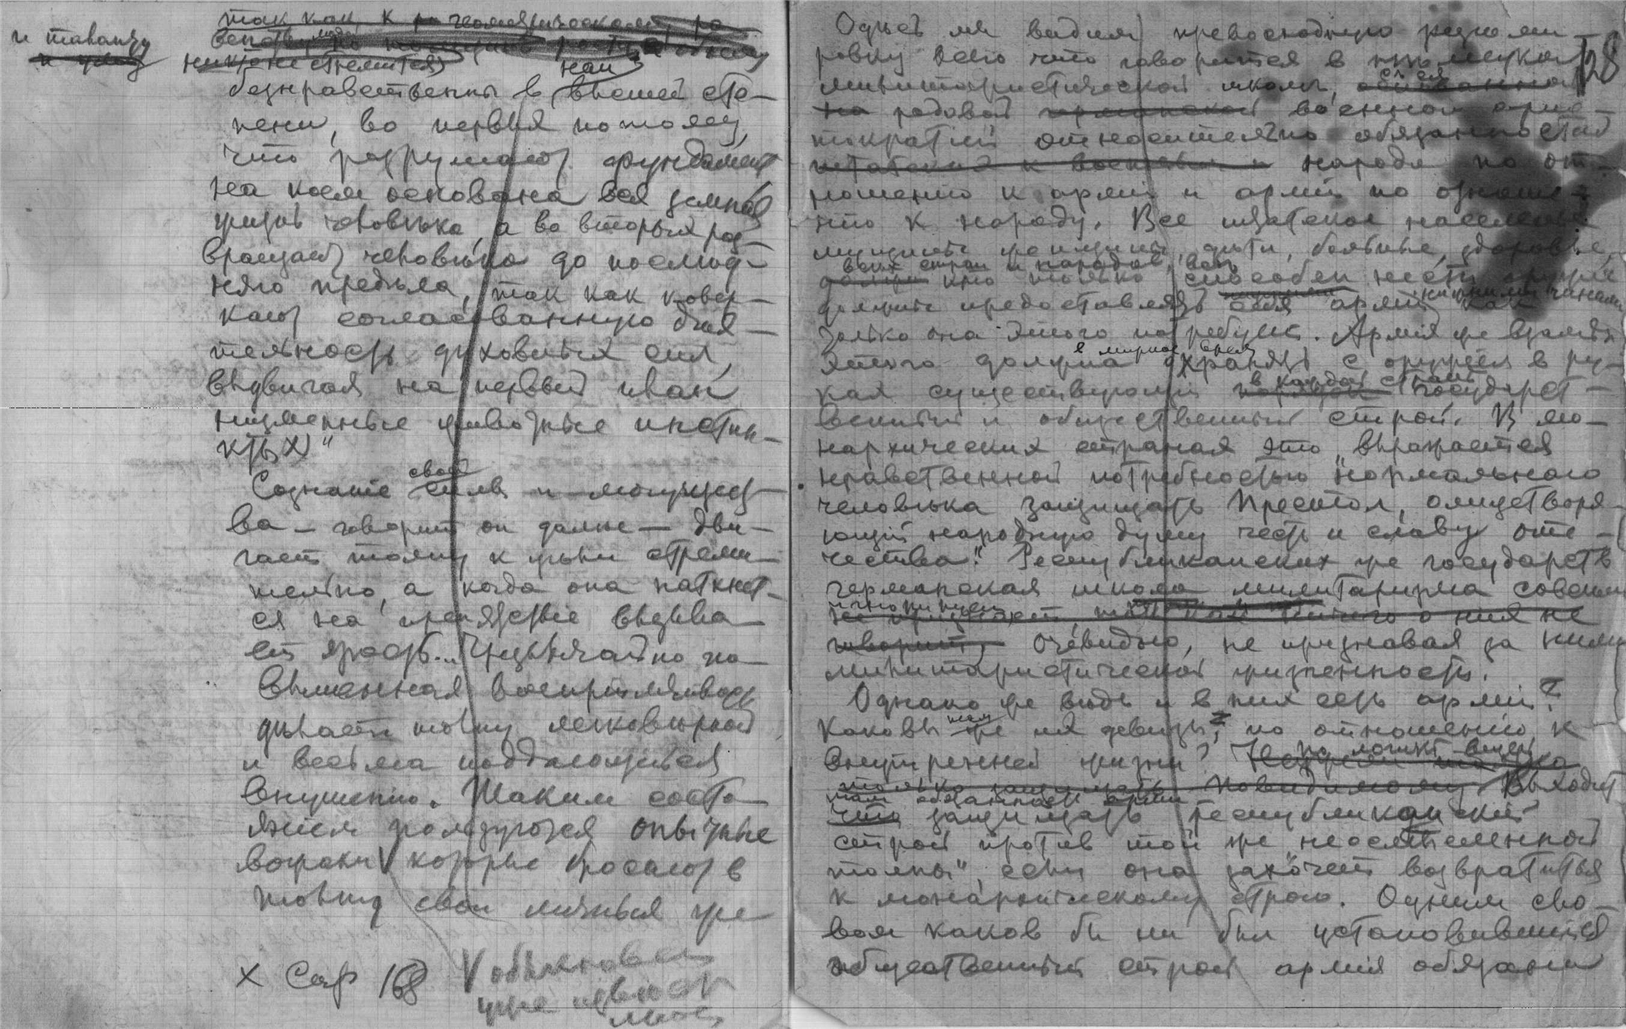 и таланту
так как к
безнравственны в высшей сте-
пени, во первых потому,
что разрушают фундамент
на коем основана вся земная
жизнь человека, а во вторых раз-
вращает человека до послед-
няго предела, так как ковер-
кают согласованную дея-
тельность духовных сил,
выдвигая на первый план
низменные животные инстин-
кты х)"
свой
Сознание силы и могущест-
ва — говорит он далее — дви-
гает толпу к цели стреми-
тельно, а когда она наткнет-
ся на препятствие вызыва-
ет ярость... Чрезвычайно по-
вышенная восприимчивость
делает толпу легковерной
и весьма поддающейся
внушению. Таким состо-
янием пользуются опытные
вожаки V которые бросают в
толпу свои личные же-
х Стр 168
V обыкновен
128
Здесь мы видим превосходную резюми-
ровку всего что говорится в немецкой
милитаристической школе,
родовой военной арис-
тократии относительно обязанностей
народа по от-
ношению к армии и армии по отноше-
нию к народу. Все штатское население
мужчины женщины, дети, больные, здоровые,
всех стран и народов, весь
кто только способен нести оружие
должны предоставлять себя армии, как
только она этого потребует. Армия же взамен
в мирное время
этого должна охранять с оружием в ру-
в каждой стране
ках существующий порядок государст-
венный и общественный строй. В мо-
нархических странах это "выражается
нравственной потребностью нормальнаго
человека защищать Престол, олицетворя-
ющий народную думу честь и славу оте-
чества". Республиканских же государств
германская школа милитаризма совсем
не признает, ничего о них не
говорит, очевидно, не признавая за ними
милитаристической жизненности.
Однако же ведь и в них есть армии?
Каковы же их девизы, по отношению к
внутренней жизни? по логике вещей
только защищать Повидимому выходит
что защищать республиканский
строй против той же неосмысленной
толпы", если она захочет возвратиться
к монархическому строю. Одним сло-
вом каков бы ни был установившийся
общественный строй армия обязана